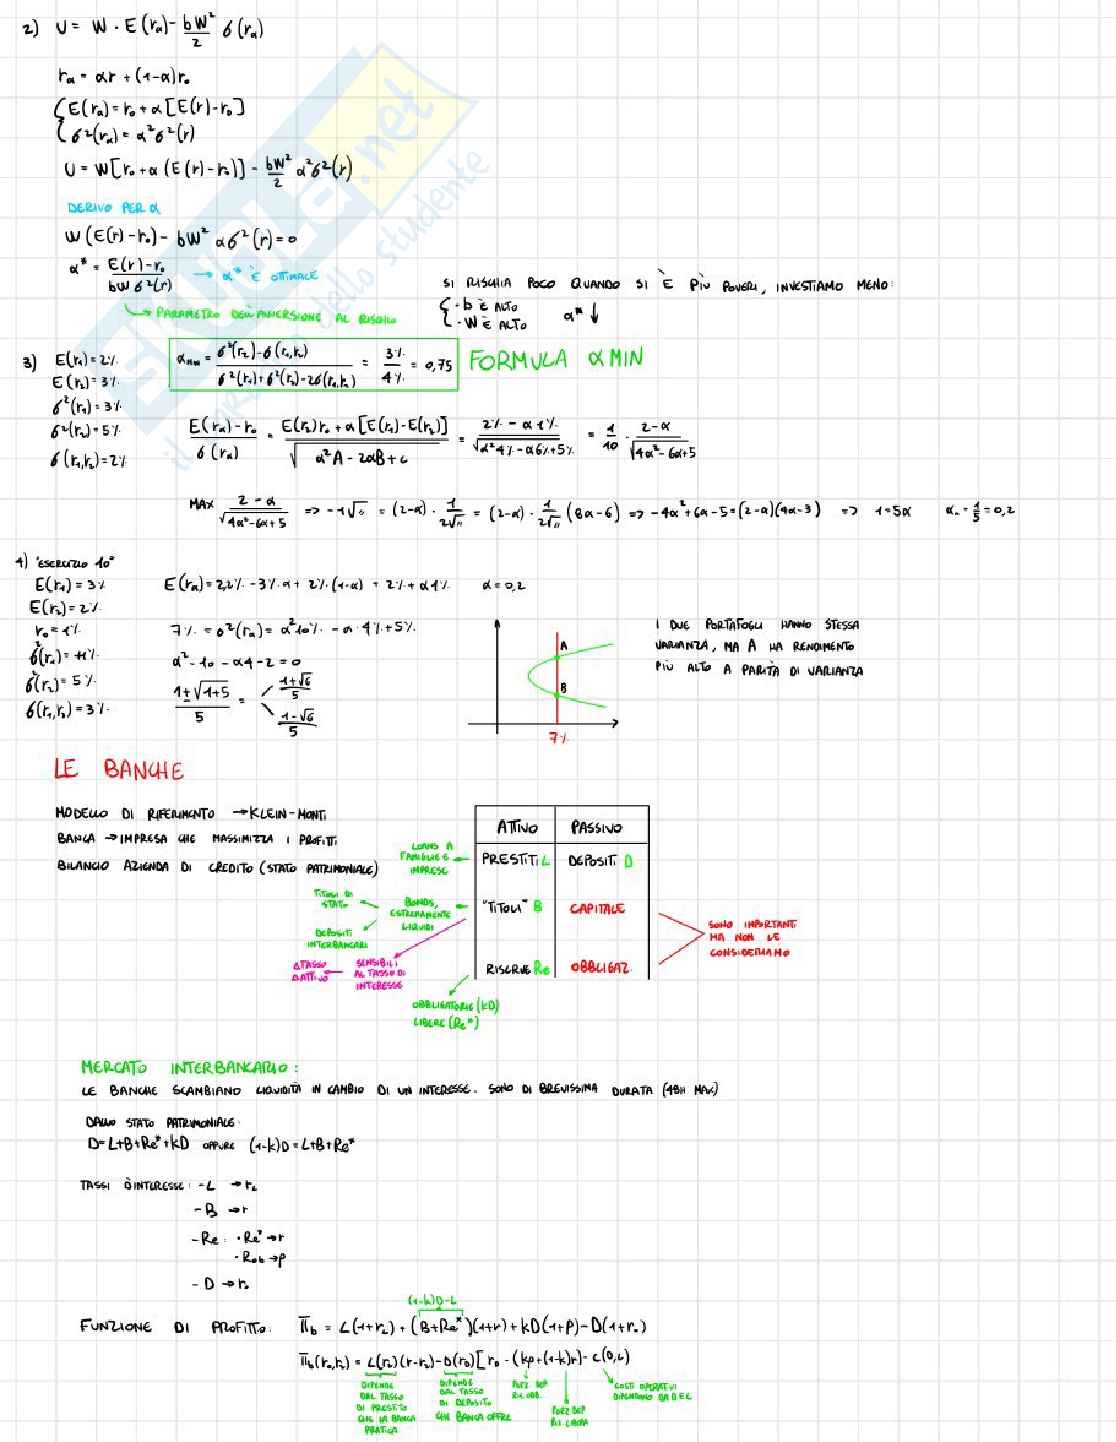 2) U = W · E(rα) - bW²/2 σ(rα)
rα = αr + (1-α)r₀
{E(rα) = r₀ + α[E(r)-r₀]
{σ²(rα) = α²σ²(r)
U = W[r₀ + α(E(r)-r₀)] - bW²/2 α²σ²(r)
DERIVO PER α
W(E(r)-r₀) - bW² ασ²(r) = 0
α* = E(r)-r₀ / bWσ²(r) → α* È OTTIMALE
↳ PARAMETRO DELL'AVVERSIONE AL RISCHIO
SI RISCHIA POCO QUANDO SI È PIÙ POVERI, INVESTIAMO MENO:
{ - b È ALTO
- W È ALTO α* ↓
3) E(r₁) = 2%
E(r₂) = 3%
σ²(r₁) = 3%
σ²(r₂) = 5%
σ(r₁,r₂) = 2%
αMIN = σ²(r₂)-σ(r₁,r₂) / σ²(r₁)+σ²(r₂)-2σ(r₁,r₂) = 3%/4% = 0,75 FORMULA α MIN
E(rα)-r₀ / σ(rα) = E(r₂)r₀ + α[E(r₁)-E(r₂)] / √α²A-2αB+C = 2%-α1% / √α²4%-α6%+5% = 1/10 · 2-α / √4α²-6α+5
MAX 2-α / √4α²-6α+5 => -1√ = (2-α) · 1/2√ = (2-α) · 1/2√ (8α-6) => -4α²+6α-5 = (2-α)(4α-3) => 1=5α α = 1/5 = 0,2
4) "ESERCIZIO 10"
E(r₁) = 3%
E(r₂) = 2%
r₀ = 1%
σ²(r₁) = 11%
σ²(r₂) = 5%
σ(r₁,r₂) = 3%
E(rα) = 2,2% - 3% · α + 2% · (1-α) = 2% + α1% α = 0,2
7% = σ²(rα) = α²10% - α · 4% + 5%
α² - 10 - α4 - 2 = 0
1±√1+5 / 5 = 1+√6 / 5
1-√6 / 5
A
B
7%
I DUE PORTAFOGLI HANNO STESSA
VARIANZA, MA A HA RENDIMENTO
PIÙ ALTO A PARITÀ DI VARIANZA
LE BANCHE
MODELLO DI RIFERIMENTO → KLEIN-MONTI
BANCA → IMPRESA CHE MASSIMIZZA I PROFITTI
BILANCIO AZIENDA DI CREDITO (STATO PATRIMONIALE)
ATTIVO PASSIVO
LOANS A
FAMIGLIE E
IMPRESE
PRESTITI L DEPOSITI D
TITOLI DI
STATO
BONDS,
ESTREMAMENTE
LIQUIDI
"TITOLI" B CAPITALE
DEPOSITI
INTERBANCARI
SONO IMPORTANTI
MA NON LE
CONSIDERIAMO
ΔTASSO
ΔATTIVO
SENSIBILI
AL TASSO DI
INTERESSE
RISERVE Re OBBLIGAZ.
OBBLIGATORIE (kD)
LIBERE (Re*)
MERCATO INTERBANCARIO:
LE BANCHE SCAMBIANO LIQUIDITÀ IN CAMBIO DI UN INTERESSE. SONO DI BREVISSIMA DURATA (48H MAX)
DALLO STATO PATRIMONIALE:
D = L+B+Re*+kD OPPURE (1-k)D = L+B+Re*
TASSI D'INTERESSE: - L → rL
- B → r
- Re: · Re* → r
· Rob → p
- D → r₀
(1-k)D-L
FUNZIONE DI PROFITTO: Πb = L(1+rL) + (B+Re*)(1+r) + kD(1+p) - D(1+r₀)
Πb(r₀,rL) = L(rL)(r-rL) - D(r₀)[r₀ - (kp+(1-k)r)] - C(D,L)
DIPENDE
DAL TASSO
DI PRESTITO
CHE LA BANCA
PRATICA
DIPENDE
DAL TASSO
DI DEPOSITO
CHE BANCA OFFRE
PORZ DEP
RIS. OBB.
PORZ DEP
RIS. LIBERA
COSTI OPERATIVI
DIPENDONO DA D E L
SKUOLA.net
il paradiso dello studente